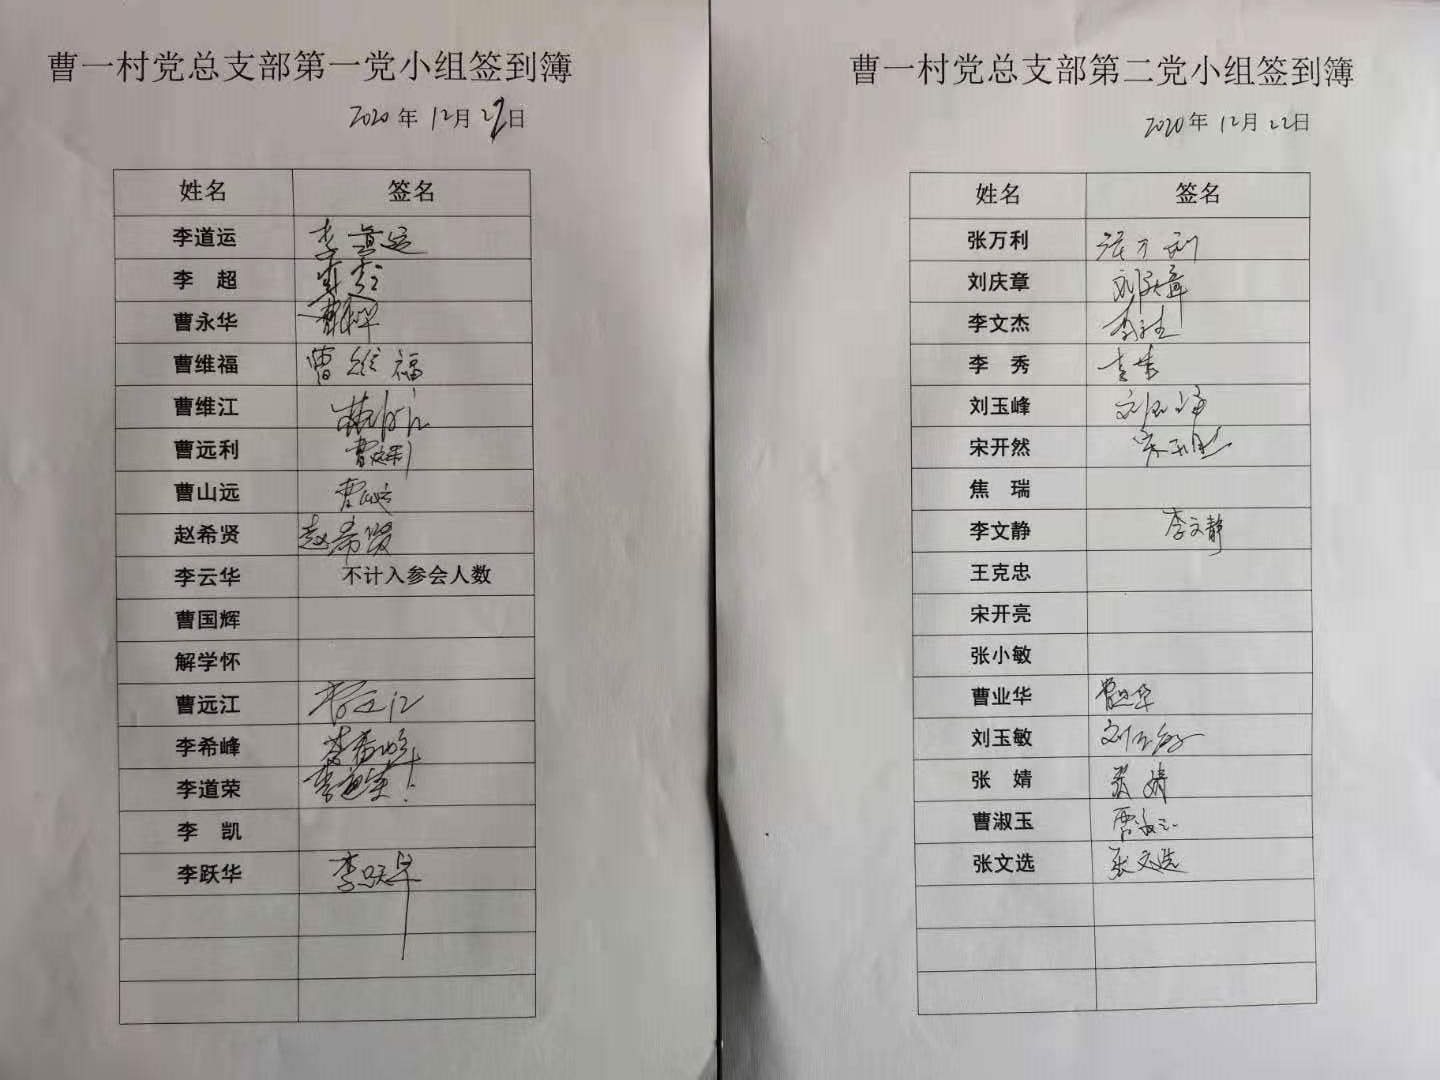 曹一村党总支部第一党小组签到簿
2020年 12月 22日
姓名 签名
李道运 李道运
李 超 李超
曹永华 曹永华
曹维福 曹维福
曹维江 曹维江
曹远利 曹远利
曹山远 曹山远
赵希贤 赵希贤
李云华 不计入参会人数
曹国辉
解学怀
曹远江 曹远江
李希峰 李希峰
李道荣 李道荣
李 凯
李跃华 李跃华
曹一村党总支部第二党小组签到簿
2020年 12月 22日
姓名 签名
张万利 张万利
刘庆章 刘庆章
李文杰 李文杰
李 秀 李秀
刘玉峰 刘玉峰
宋开然 宋开然
焦 瑞
李文静 李文静
王克忠
宋开亮
张小敏
曹业华 曹业华
刘玉敏 刘玉敏
张 婧 张婧
曹淑玉 曹淑玉
张文选 张文选